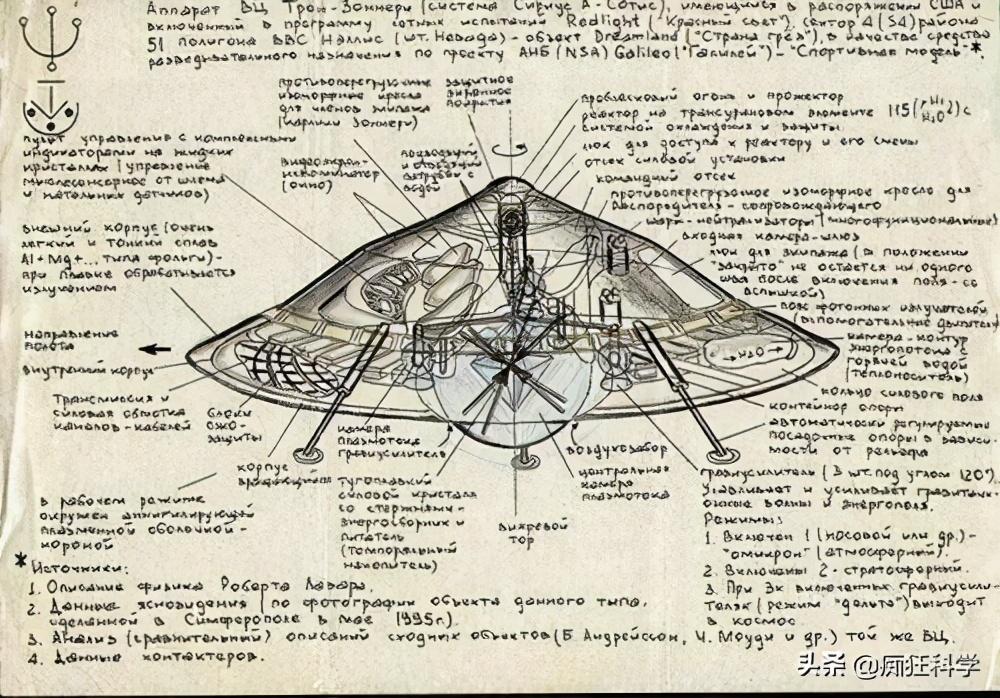 Аппарат ВЦ Трон-Зоннери (система Сириус А - Сотис), имеющийся в распоряжении США и
включенный в программу лётных испытаний Redlight ("Красный свет"), сектор 4 (S4) района
51 полигона ВВС Нэллис (шт. Невада) - объект Dreamland ("Страна грёз"), в качестве средства
разведывательного назначения по проекту АНБ (NSA) Galileo ("Галилей") - "Спортивная модель"*.
противоперегрузочные
изоморфные кресла
для членов экипажа
защитное
покрытие
пульт управления с
индикаторами на жидких
кристаллах (управление
от шлема
и датчиков)
видеоэкран-
иллюминатор
(окно)
водой
проблесковый огонь и прожектор
реактор на трансурановом элементе 115
системой охлаждения и защиты
люк для доступа к реактору и его смены
отсек силовой установки
командный отсек
противоперегрузочное изоморфное кресло для
распорядителя - сопровождающего
шары - нейтрализаторы (многофункциональные)
входная камера-шлюз
люк для экипажа (в положении
"закрыто" не остается ни одного
шва после включения поля - со
вспышкой)
пояс фотонных излучателей
(вспомогательные двигатели)
камера - контур
энергопотока с
горячей водой
(теплоноситель)
внешний корпус (очень
легкий и тонкий сплав
Al + Mg + ... типа фольги) -
при плавке обрабатывается
излучением
направление
полета
внутренний корпус
Трансмиссия и
силовая обмотка
каналов - кабелей
блоки
защиты
корпус
вращающийся
камера
плазмотока
гравиусилитель
воздухозабор
центральная
камера
плазмотока
кольцо силового поля
контейнер опоры
автоматически регулируемые
посадочные опоры в зависи-
мости от рельефа
в рабочем режиме
окружен аннигилирующей
плазменной оболочкой -
короной
тугоплавкий
силовой кристалл
со стержнями-
энергосборник и
питатель
(темпоральный
накопитель)
вихревой
тор
гравиусилитель (3 шт. под углом 120°)
Улавливает и усиливает гравитаци-
онные волны и энергополя.
Режимы:
1. Включен 1 (носовой или др.) -
"омикрон" (атмосферный).
2. Включены 2 - стратосферный.
3. При 3х включенных гравиусили-
телях (режим "дельта") выходит
в космос.
* Источники:
1. Описание физика Роберта Лазара.
2. Данные ясновидения (по фотографии объекта данного типа,
сделанной в Симферополе в мае 1995г.).
3. Анализ (сравнительный) описаний сходных объектов (Б. Андрейссон, Ч. Моуди и др.) той же ВЦ.
4. Данные контактеров.
头条 @疯狂科学